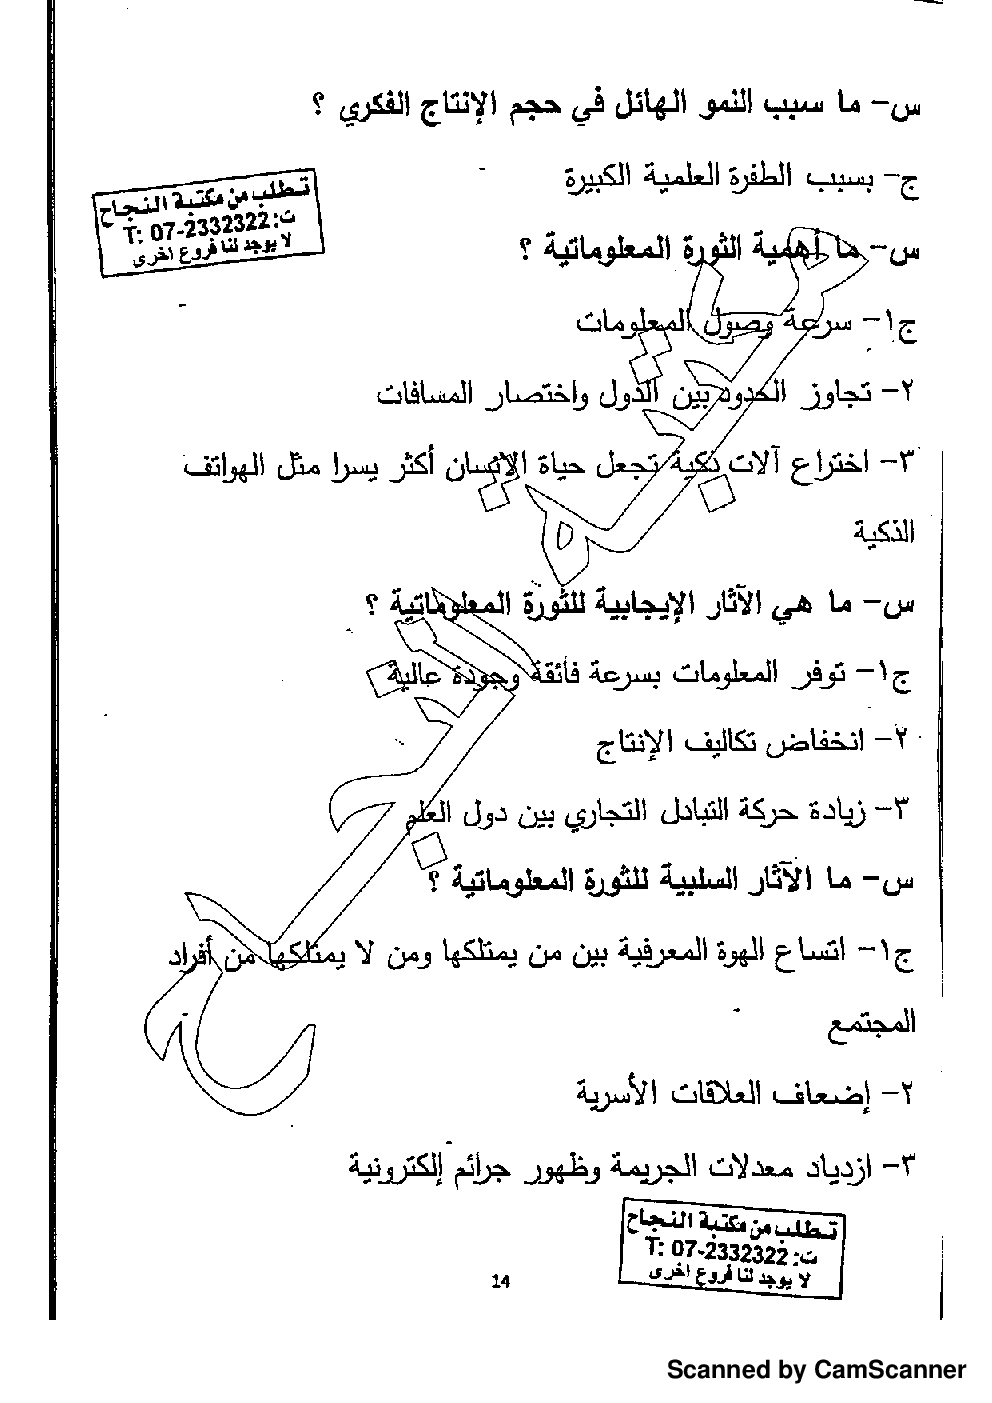 س- ما سبب النمو الهائل في حجم الإنتاج الفكري ؟
ج- بسبب الطفرة العلمية الكبيرة
تطلب من مكتبة النجاح
ت: T: 07-2332322
لا يوجد لنا فروع اخرى
س- ما أهمية الثورة المعلوماتية ؟
ج١- سرعة وصول المعلومات
٢- تجاوز الحدود بين الدول واختصار المسافات
٣- اختراع آلات ذكية تجعل حياة الإنسان أكثر يسرا مثل الهواتف
الذكية
س- ما هي الآثار الإيجابية للثورة المعلوماتية ؟
ج١- توفر المعلومات بسرعة فائقة وجودة عالية
٢- انخفاض تكاليف الإنتاج
٣- زيادة حركة التبادل التجاري بين دول العلم
س- ما الآثار السلبية للثورة المعلوماتية ؟
ج١- اتساع الهوة المعرفية بين من يمتلكها ومن لا يمتلكها من أفراد
المجتمع
٢- إضعاف العلاقات الأسرية
٣- ازدياد معدلات الجريمة وظهور جرائم إلكترونية
تطلب من مكتبة النجاح
ت: T: 07-2332322
لا يوجد لنا فروع اخرى
14
Scanned by CamScanner